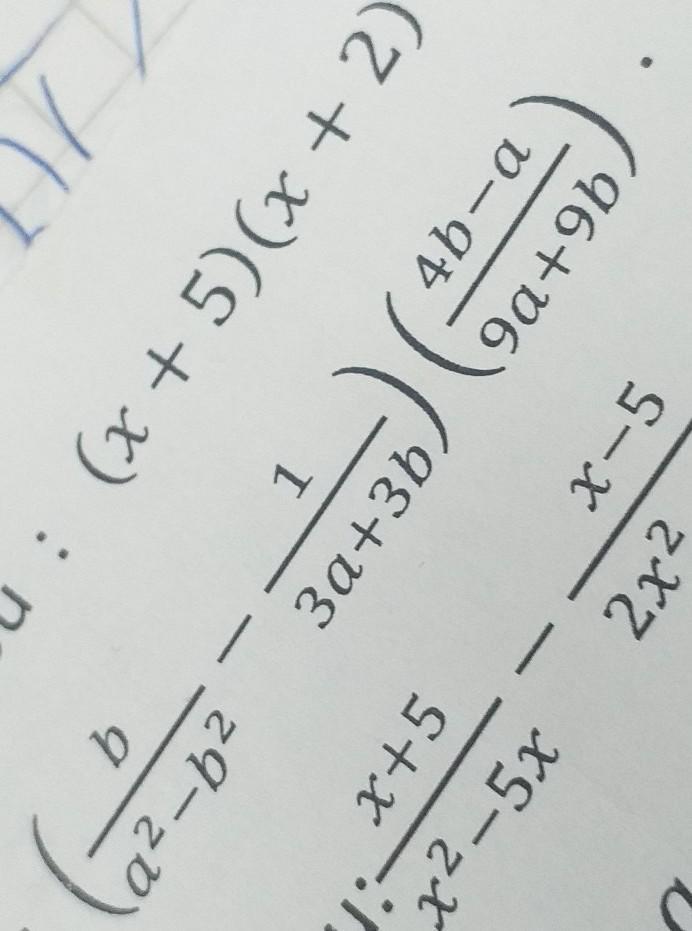 : (x + 5)(x + 2)
(b/(a² − b²) − 1/(3a+3b))((4b−a)/(9a+9b)).
: (x+5)/(x² − 5x) − (x−5)/(2x²